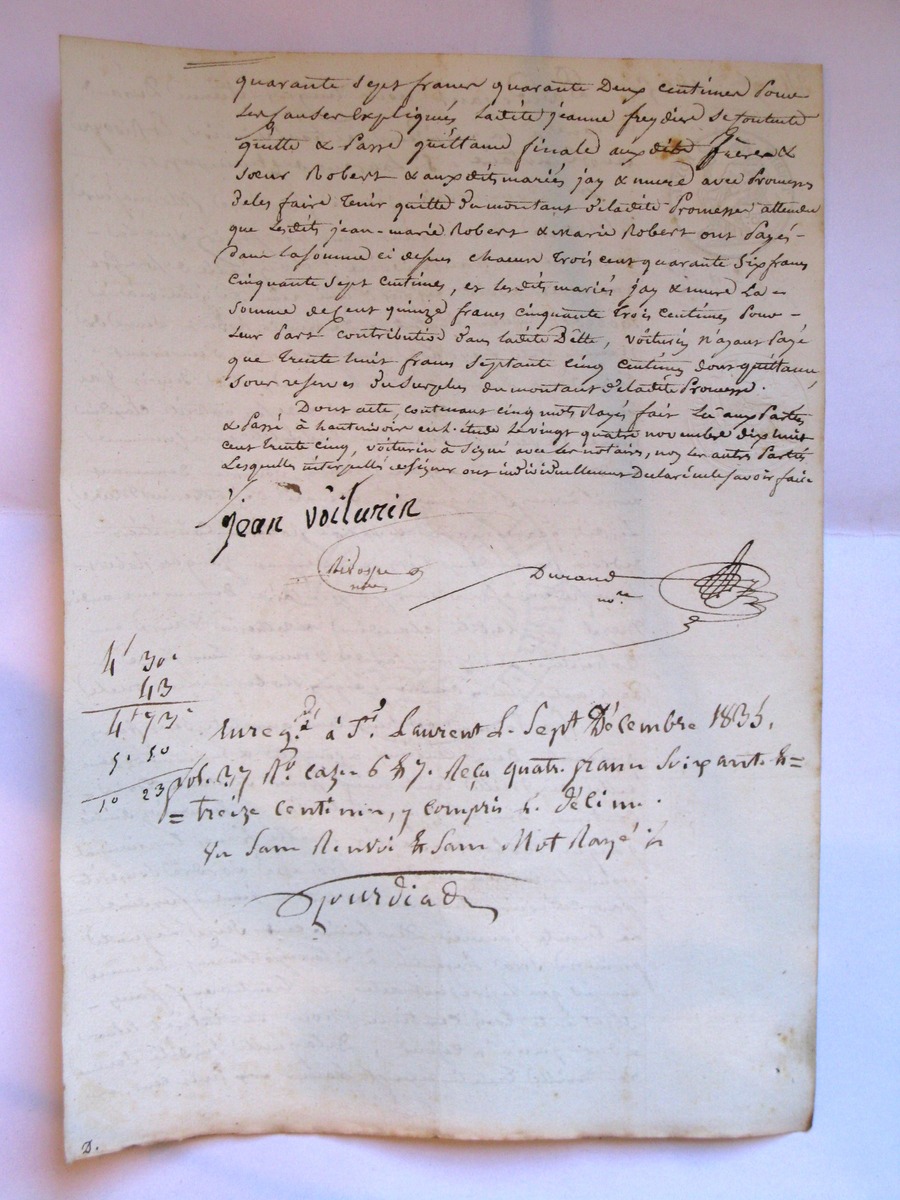 quarante sept francs quarante Deux centimes Pour
les causes Expliqués Ladite jeanne freydier se contente
quitte & Passe quittance finale auxdits frères &
sœur Robert & auxdits mariés jay & mure avec Promesse
De les faire tenir quitte du montant de ladite Promesse attendu
que Lesdits jean-marie Robert & Marie Robert ont Payés-
dans la somme ci dessus chacun trois cent quarante Six francs
cinquante sept centimes, et lesdits mariés jay & mure La =
somme de Cent quinze francs cinquante trois centimes Pour -
Leur Part contributive dans ladite Dette, voiturin n'ayant Payé
que trente huit francs septante cinq centimes dont quittance,
sous reserves du surplus du montant de ladite Promesse.
Dont acte, contenant cinq mots Rayés fait Lu aux Parties
& Passé à hauterivoire en L étude Le vingt quatre novembre dix huit
cent trente cinq, voiturin à signé avec les notaires, non les autres Parties
Lesquelles interpellé de signer ont individuellement Declaré ne le savoir faire
jean voiturin
nre
Durand
no.re
4f 30c
43
4f 73c
5. 50
10 23
Enreg.ré à St. Laurent L. Sept Décembre 1835.
vol. 37 No. caze 6 & 7. Reçu quatre francs Soixante &=
= treize centimes, y compris le décime.
Sans Renvoi & Sans Mot Rayé
Gourdiad
D.